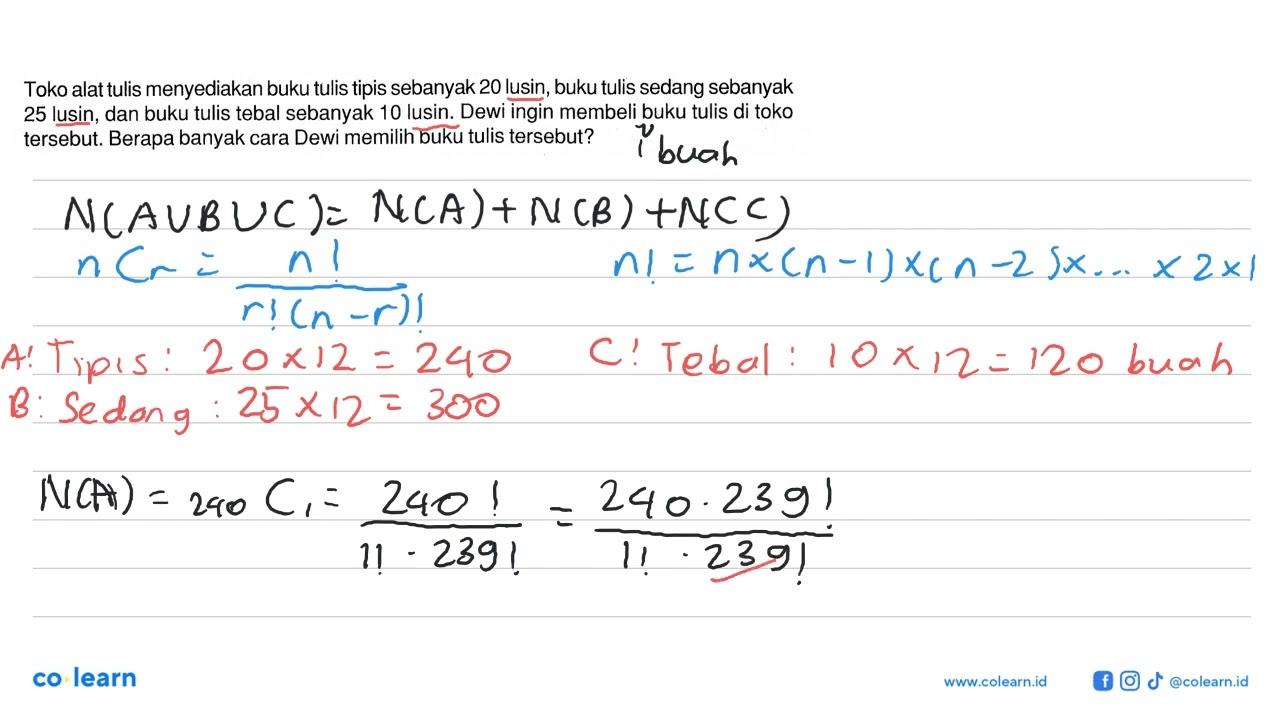 Toko alat tulis menyediakan buku tulis tipis sebanyak 20 lusin, buku tulis sedang sebanyak
25 lusin, dan buku tulis tebal sebanyak 10 lusin. Dewi ingin membeli buku tulis di toko
tersebut. Berapa banyak cara Dewi memilih buku tulis tersebut?
1 buah
N(A∪B∪C) = N(A) + N(B) + N(C)
nCr = n! / r!(n-r)!
n! = n×(n-1)×(n-2)×... × 2×1
A: Tipis : 20 × 12 = 240
C: Tebal : 10 × 12 = 120 buah
B: Sedang : 25 × 12 = 300
N(A) = 240 C1 = 240! / 1! · 239! = 240 · 239! / 1! · 239!
co learn
www.colearn.id
@colearn.id